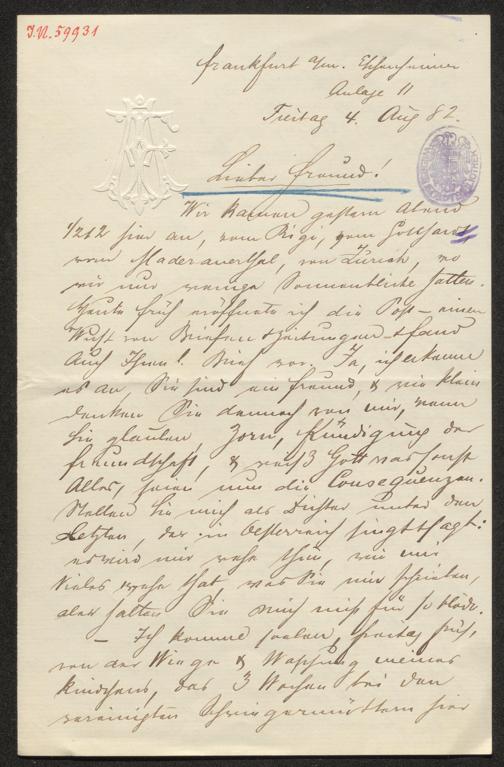 J.N. 59931
Frankfurt a/m. Eschenheimer
Anlage 11
Freitag 4. Aug 82.
Lieber Freund!
Wir kamen gestern Abend
1/2 12 hier an, vom Rigi, vom Gotthardt
vom Maderanerthal, von Zürich, wo
wir nur wenige Sonnenblicke hatten.
Heute früh eröffnete ich die Post – einen
Wust von Briefen & Zeitungen & fand
auch Ihren l. Brief vor. Ja, ich erkenne
es an, Sie sind ein Freund, & wie klein
denken Sie dennoch von mir, wenn
Sie glauben, Zorn, Kündigung der
Freundschaft, & weiß Gott was sonst
Alles, seien nun die Consequenzen.
Stellen Sie mich als Dichter unter den
Letzten, der in Oesterreich singt & sagt:
es wird mir wehe thun, wie mir
Vieles wehe that was Sie mir schrieben,
aber halten Sie mich nicht für so blöde.
– Ich komme soeben, Freitag früh,
von der Wiege & Waschung meines
Kindchens, das 3 Wochen bei den
vereinigten Schwiegermüttern hier